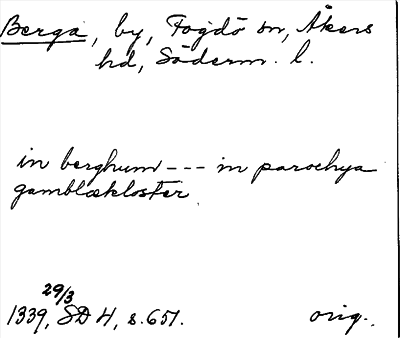 Berga, by, Fogdö sn, Åkers
hd, Söderm. l.
in berghum --- in parochya
gamblækloster
29/3
1339, SD 4, s. 651.
orig.